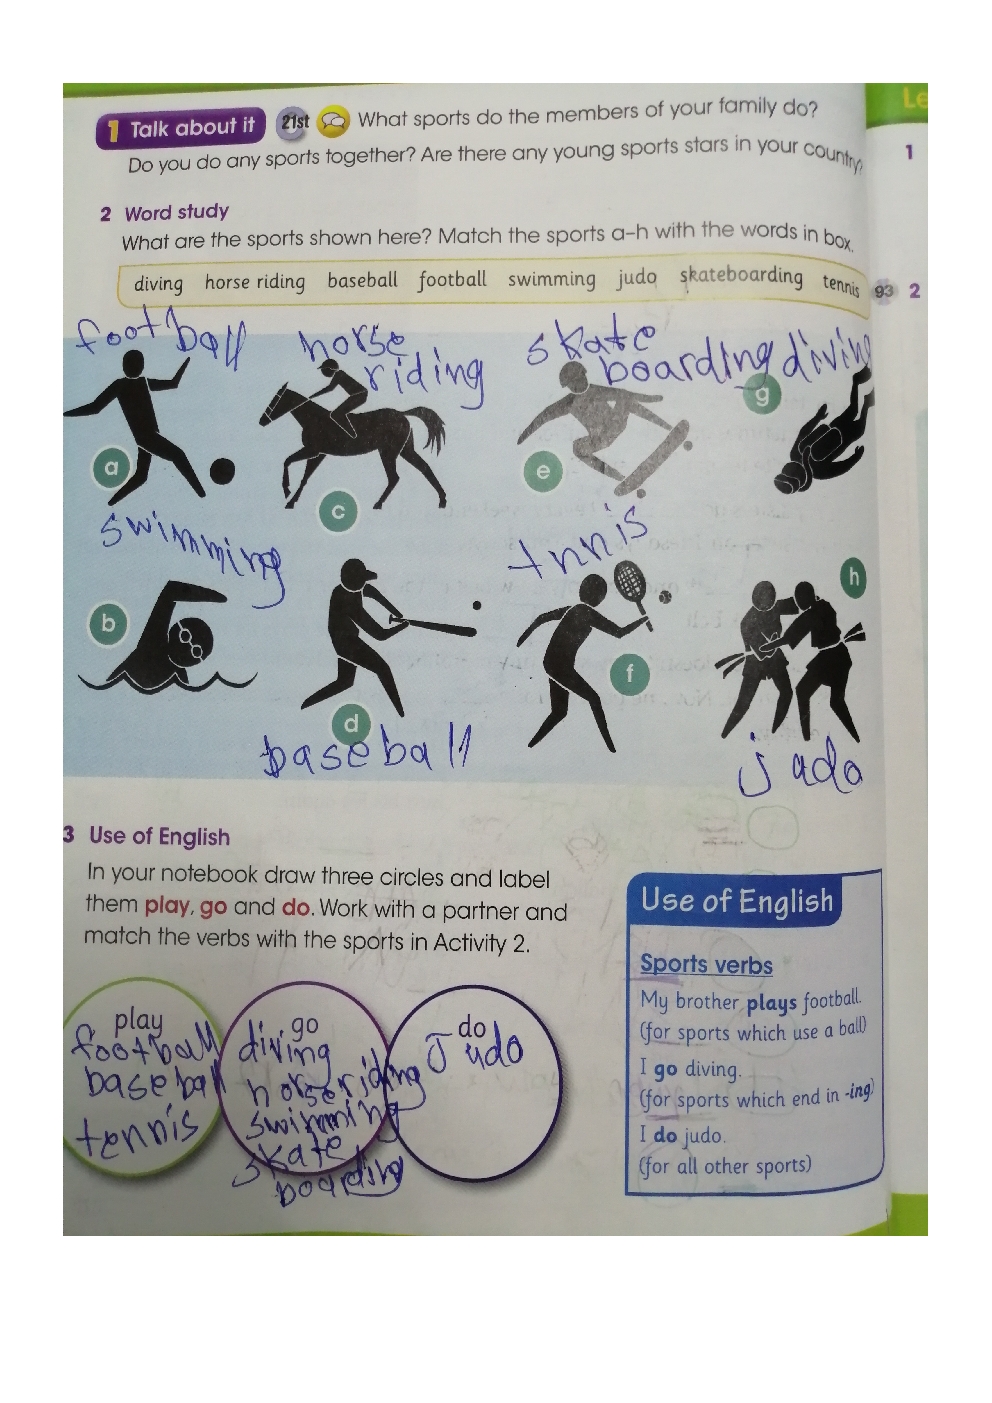 Le
1 Talk about it 21st What sports do the members of your family do?
Do you do any sports together? Are there any young sports stars in your country?
1
2 Word study
What are the sports shown here? Match the sports a–h with the words in box.
diving horse riding baseball football swimming judo skateboarding tennis
93 2
football
horse
riding
skate
boarding
diving
a
c
e
g
swimming
tnnis
b
d
f
h
baseball
jado
3 Use of English
In your notebook draw three circles and label
them play, go and do. Work with a partner and
match the verbs with the sports in Activity 2.
play
football
baseball
tennis
go
diving
horse riding
swimming
skate
boarding
do
Judo
Use of English
Sports verbs
My brother plays football.
(for sports which use a ball)
I go diving.
(for sports which end in -ing)
I do judo.
(for all other sports)